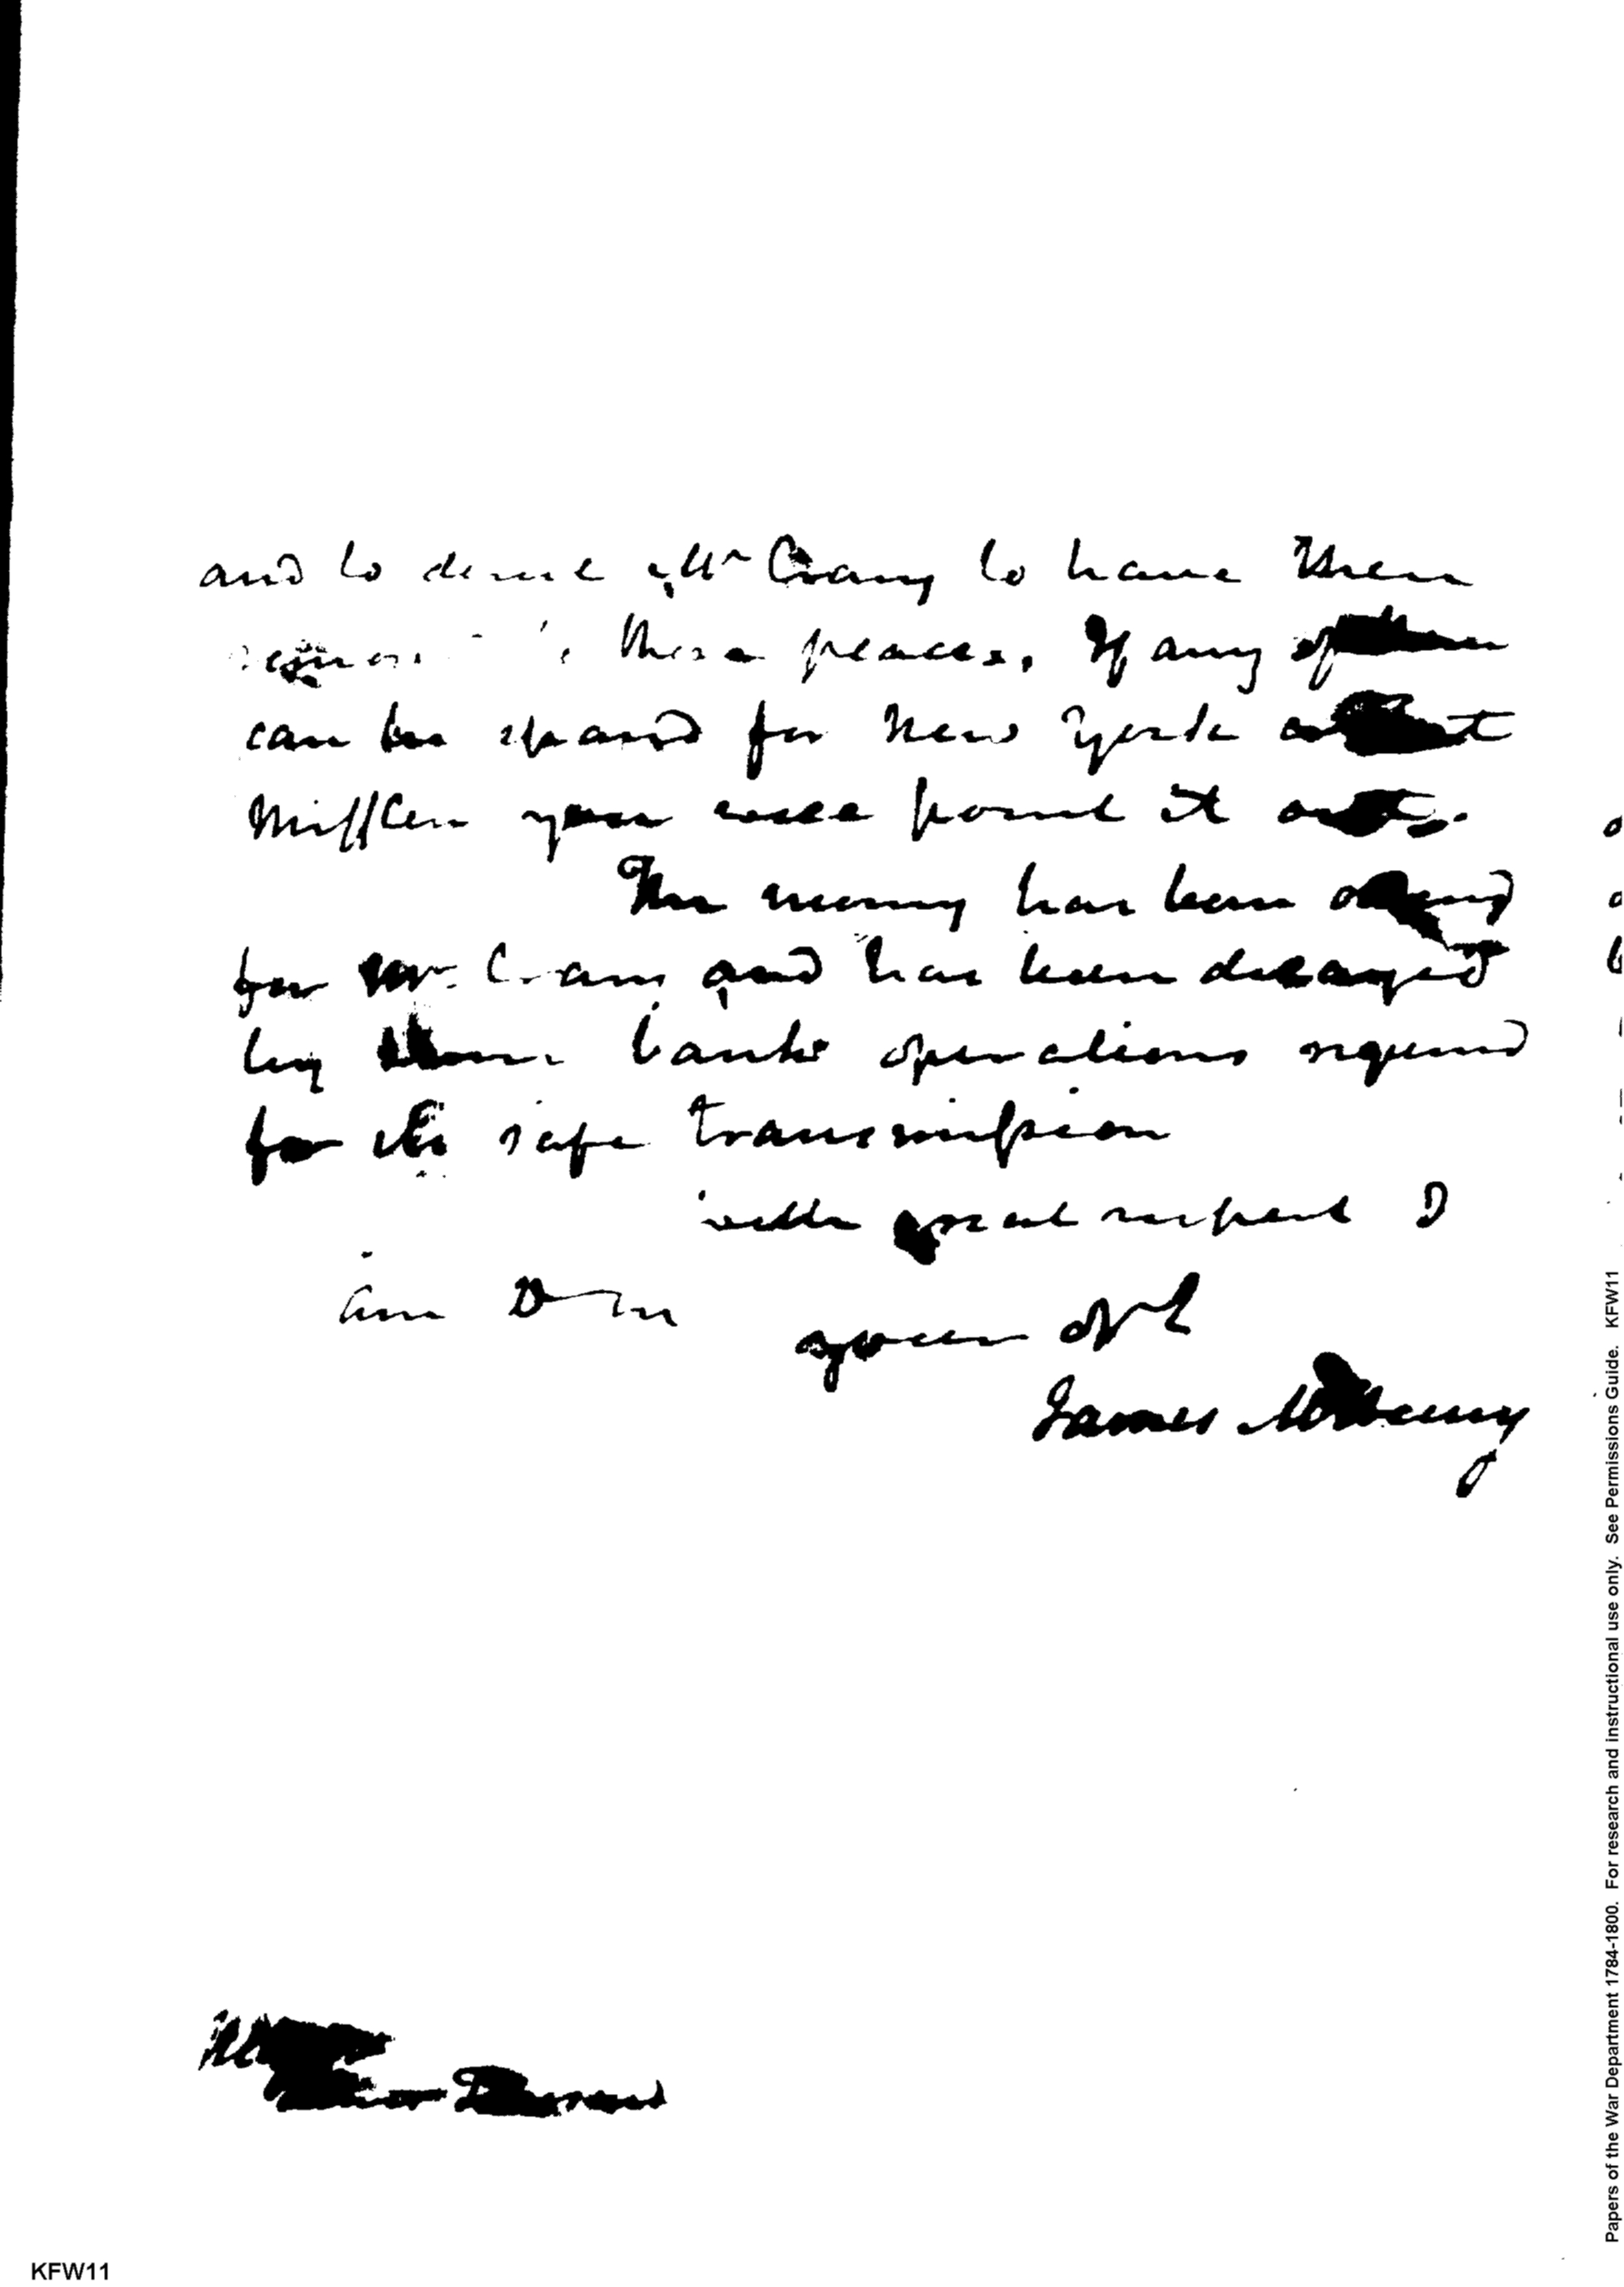 and to desire Mr Craig to have them
to these places. If any of them
can be spared for New York or Fort
Mifflin you will point it out.
The money has been ordered
for Mr. Craig and has been delayed
by some bank operations required
for its safe transmission
with great respect I
am D Sir
your Obt
James McHenry
KFW11
Papers of the War Department 1784-1800. For research and instructional use only. See Permissions Guide. KFW11